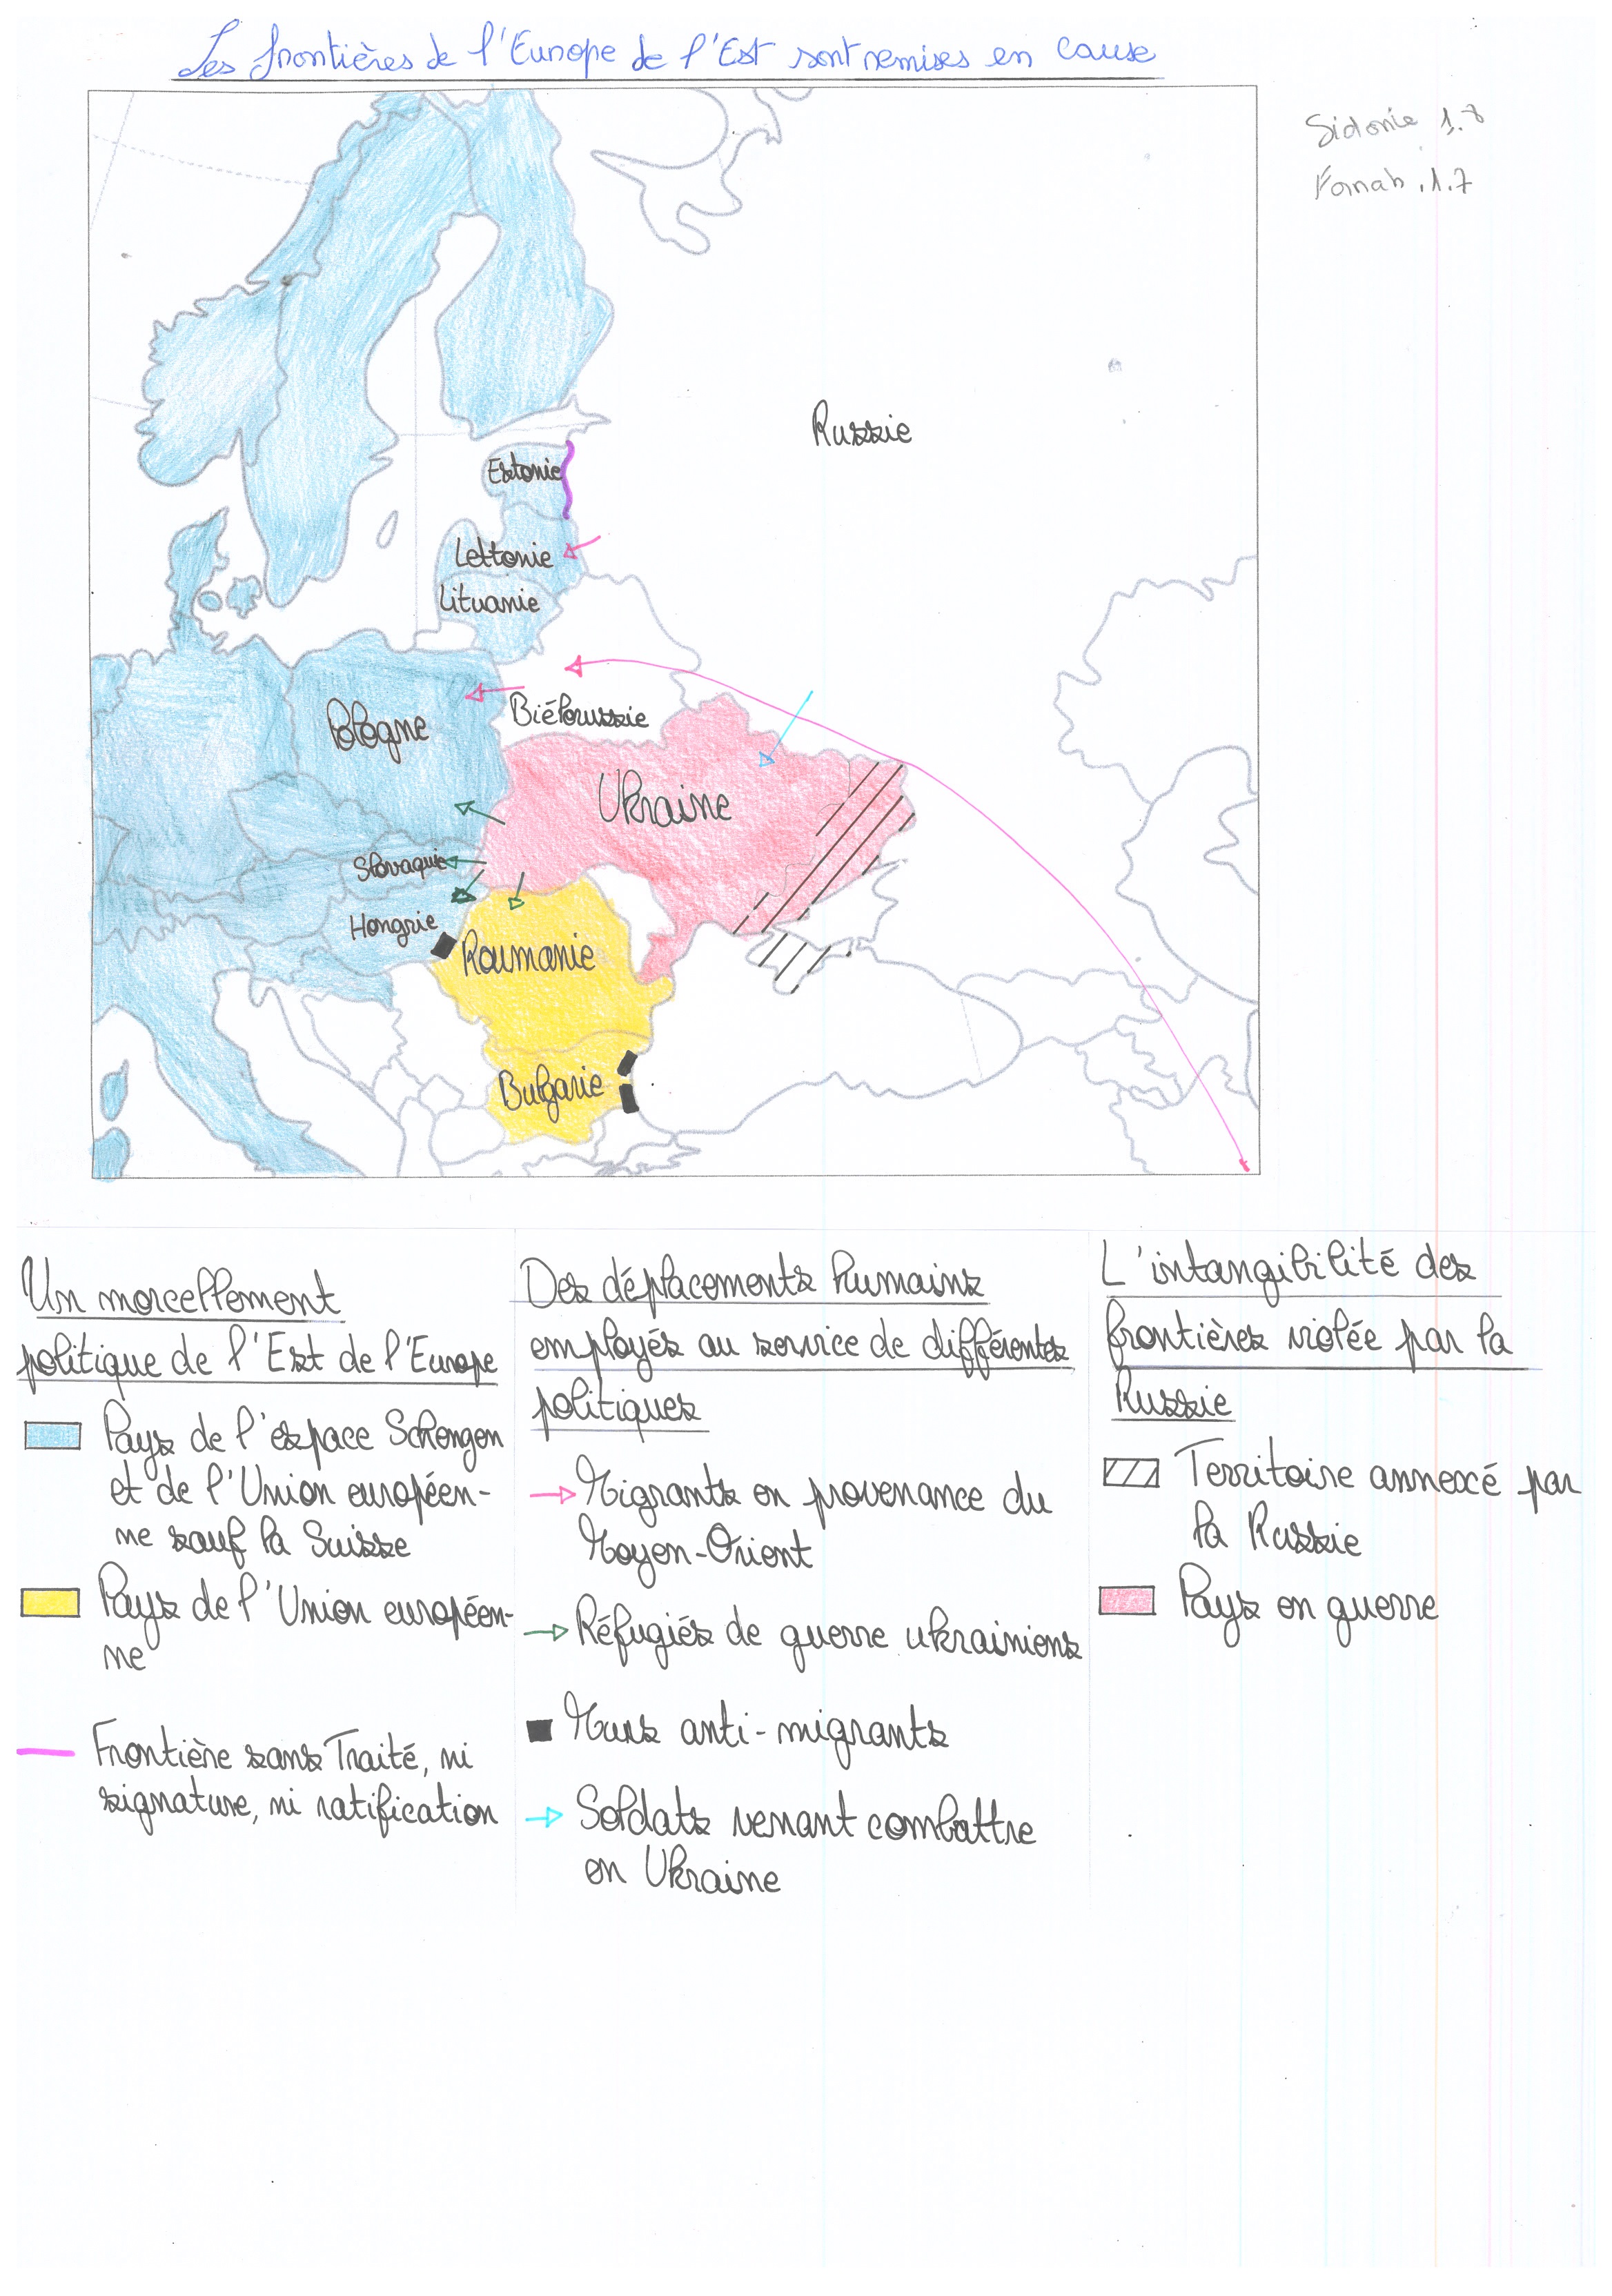 Les frontières de l'Europe de l'Est sont remises en cause
Sidonie 1.7
1.7
Russie
Estonie
Lettonie
Lituanie
Biélorussie
Pologne
Ukraine
Slovaquie
Hongrie
Roumanie
Bulgarie
Un morcellement
politique de l'Est de l'Europe
Pays de l'espace Schengen
et de l'Union européen-
ne sauf la Suisse
Pays de l'Union européen-
ne
Frontière sans Traité, ni
signature, ni ratification
Des déplacements humains
employés au service de différentes
politiques
Migrants en provenance du
Moyen-Orient
Réfugiés de guerre ukrainiens
Murs anti-migrants
Soldats venant combattre
en Ukraine
L'intangibilité des
frontières violée par la
Russie
Territoire annexé par
la Russie
Pays en guerre